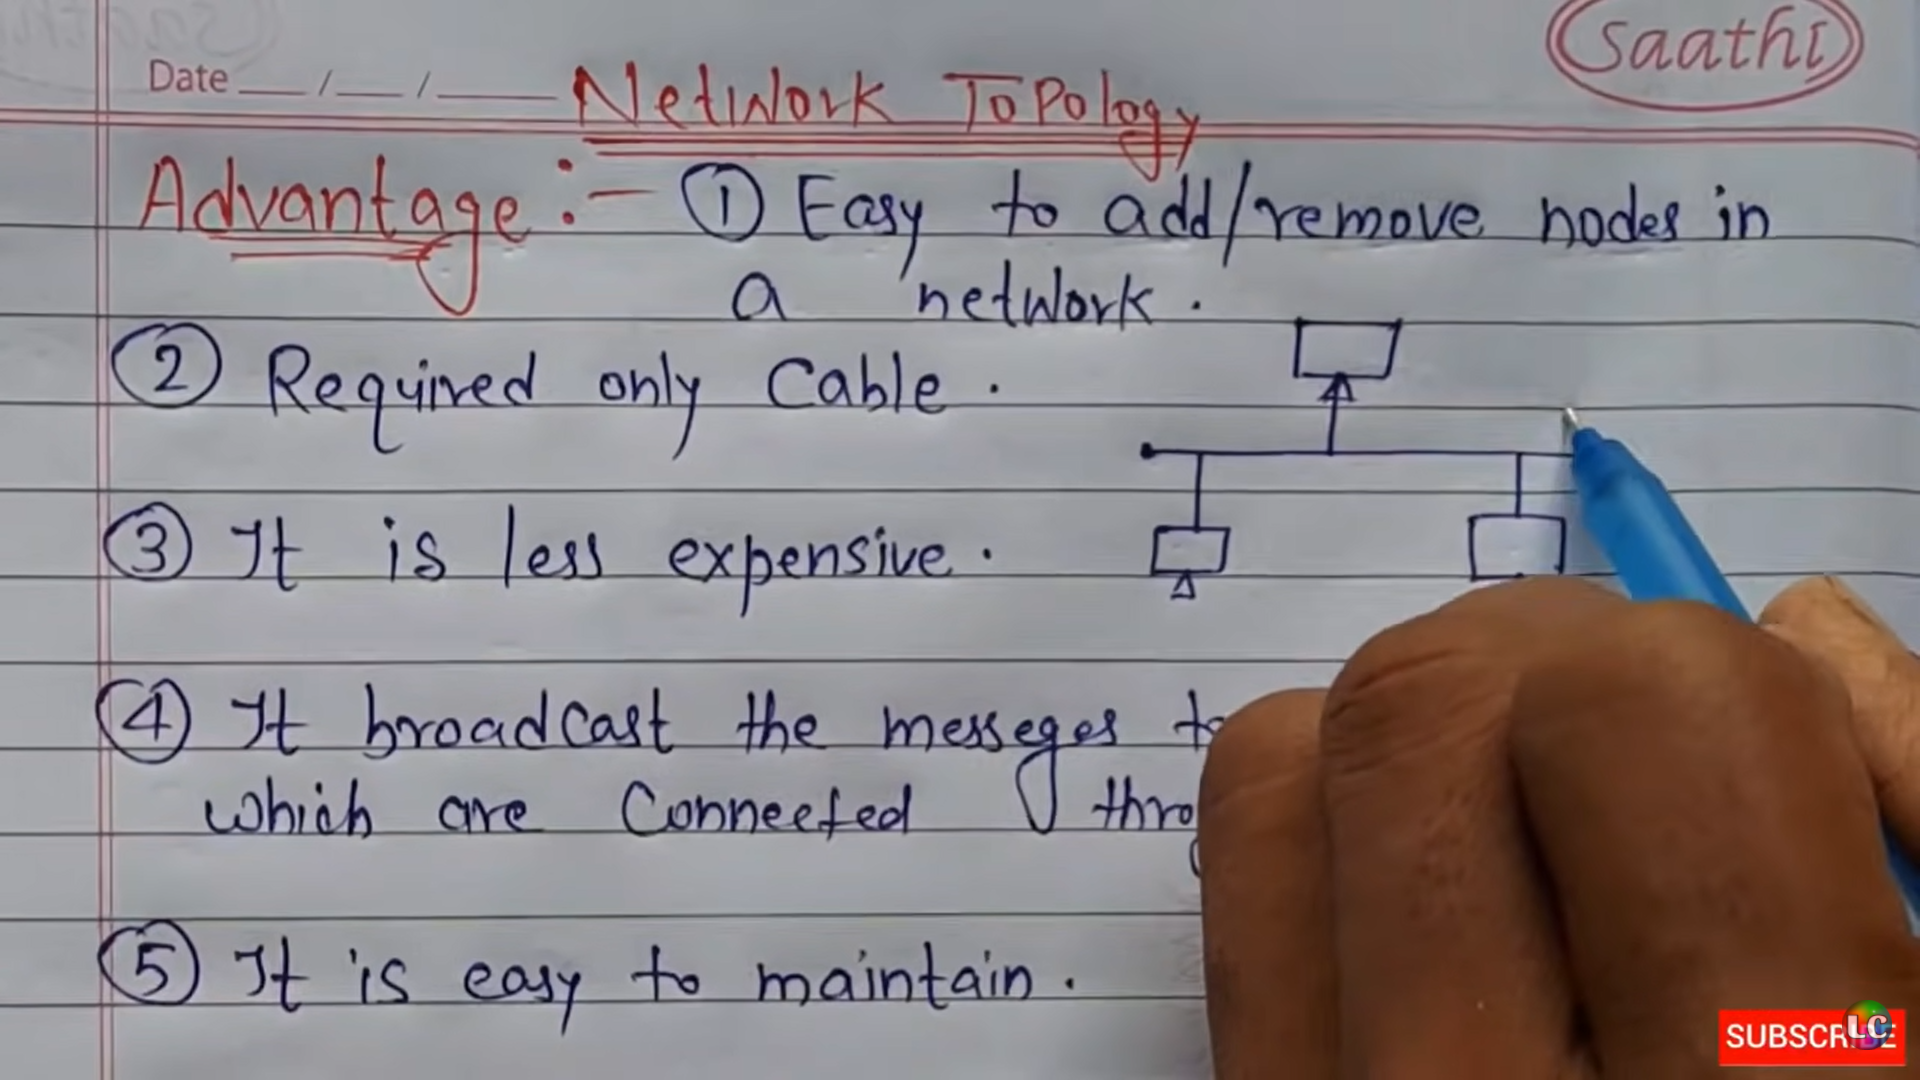 Saathi
Date __/__/____ Network Topology
Advantage :- ① Easy to add/remove nodes in
a network.
② Required only Cable.
③ It is less expensive.
④ It broadcast the messeges
which are Connected
⑤ It is easy to maintain.
SUBSCRIBE
LC